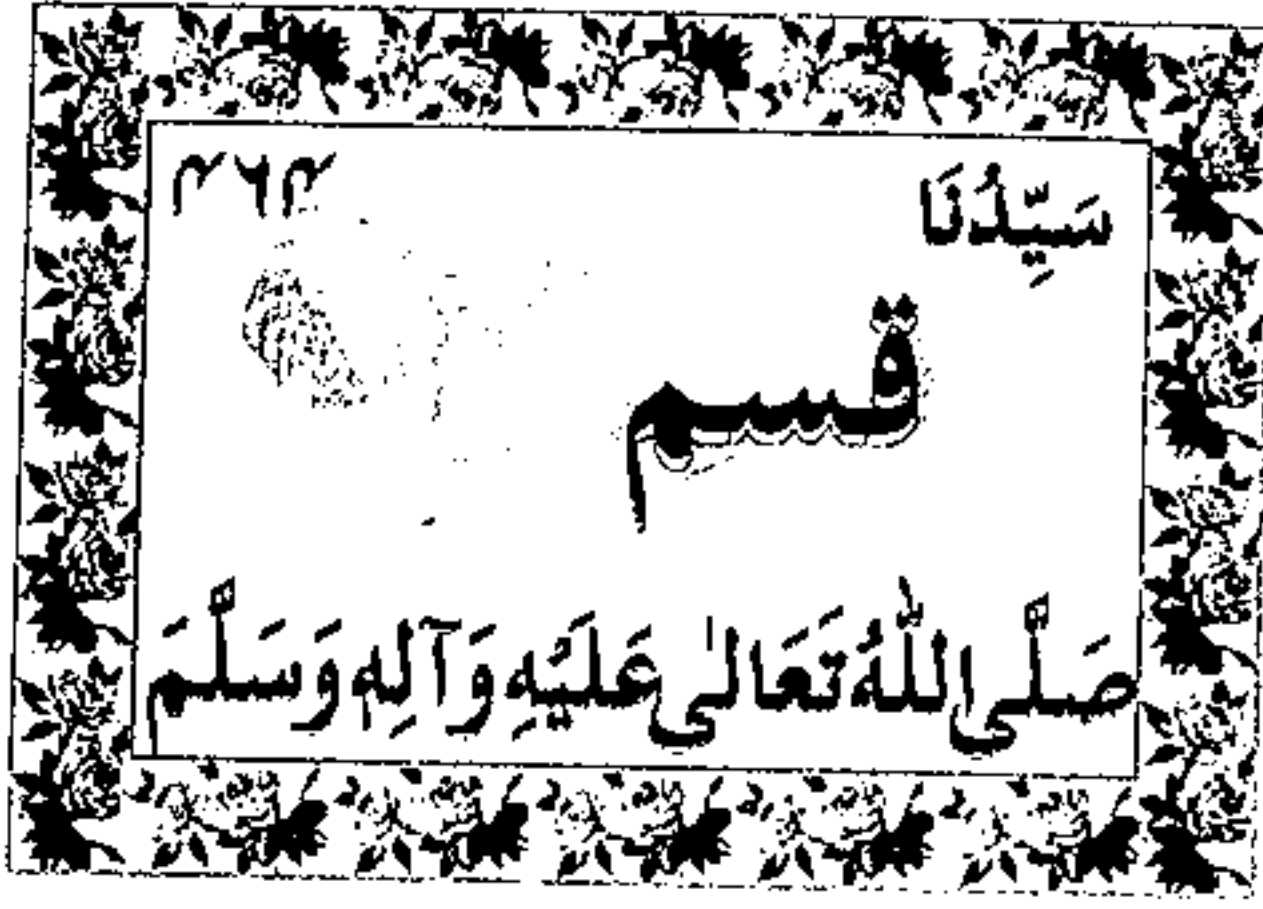 سَيِّدُنَا ۳۶۳
قسم
صَلَّى اللّٰهُ تَعَالٰى عَلَيْهِ وَآلِهِ وَسَلَّمَ